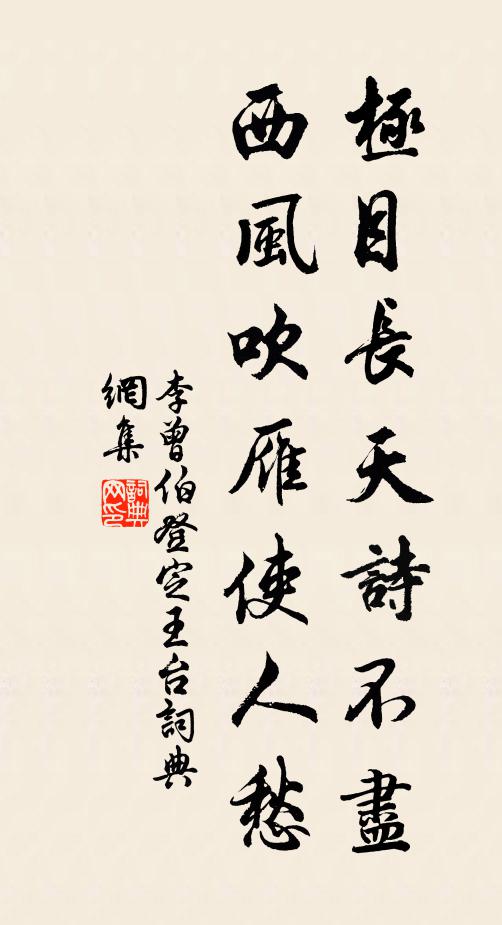 極目長天詩不盡
西風吹雁使人愁
李曾伯登定王台詞典
網集
詞典
网印